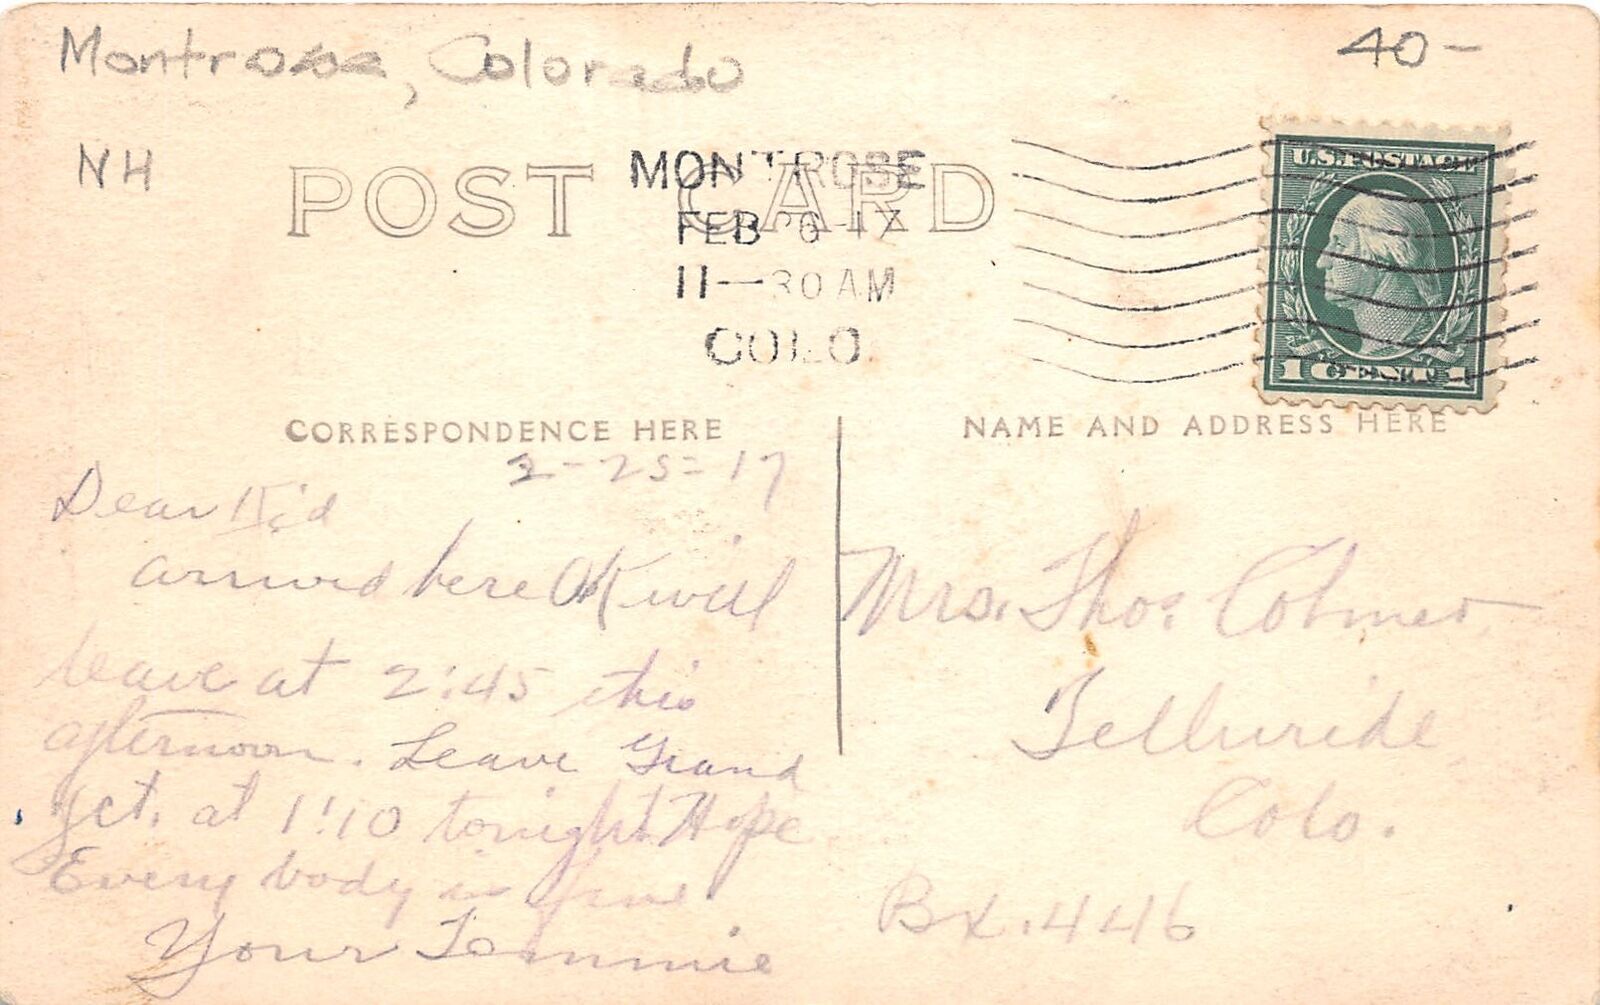 Montrose, Colorado
40-
NH
POST CARD
MONTROSE
FEB 26 17
11-30 AM
COLO.
U.S. POSTAGE
1 CENT 1
CORRESPONDENCE HERE
NAME AND ADDRESS HERE
2-25-17
Dear Kid
arrived here OK will
leave at 2:45 this
afternoon. Leave Grand
Jct. at 1:10 tonight. Hope
Every body is fine.
Your Tommie
Mrs. Thos.
Telluride
Colo.
Bx. 446